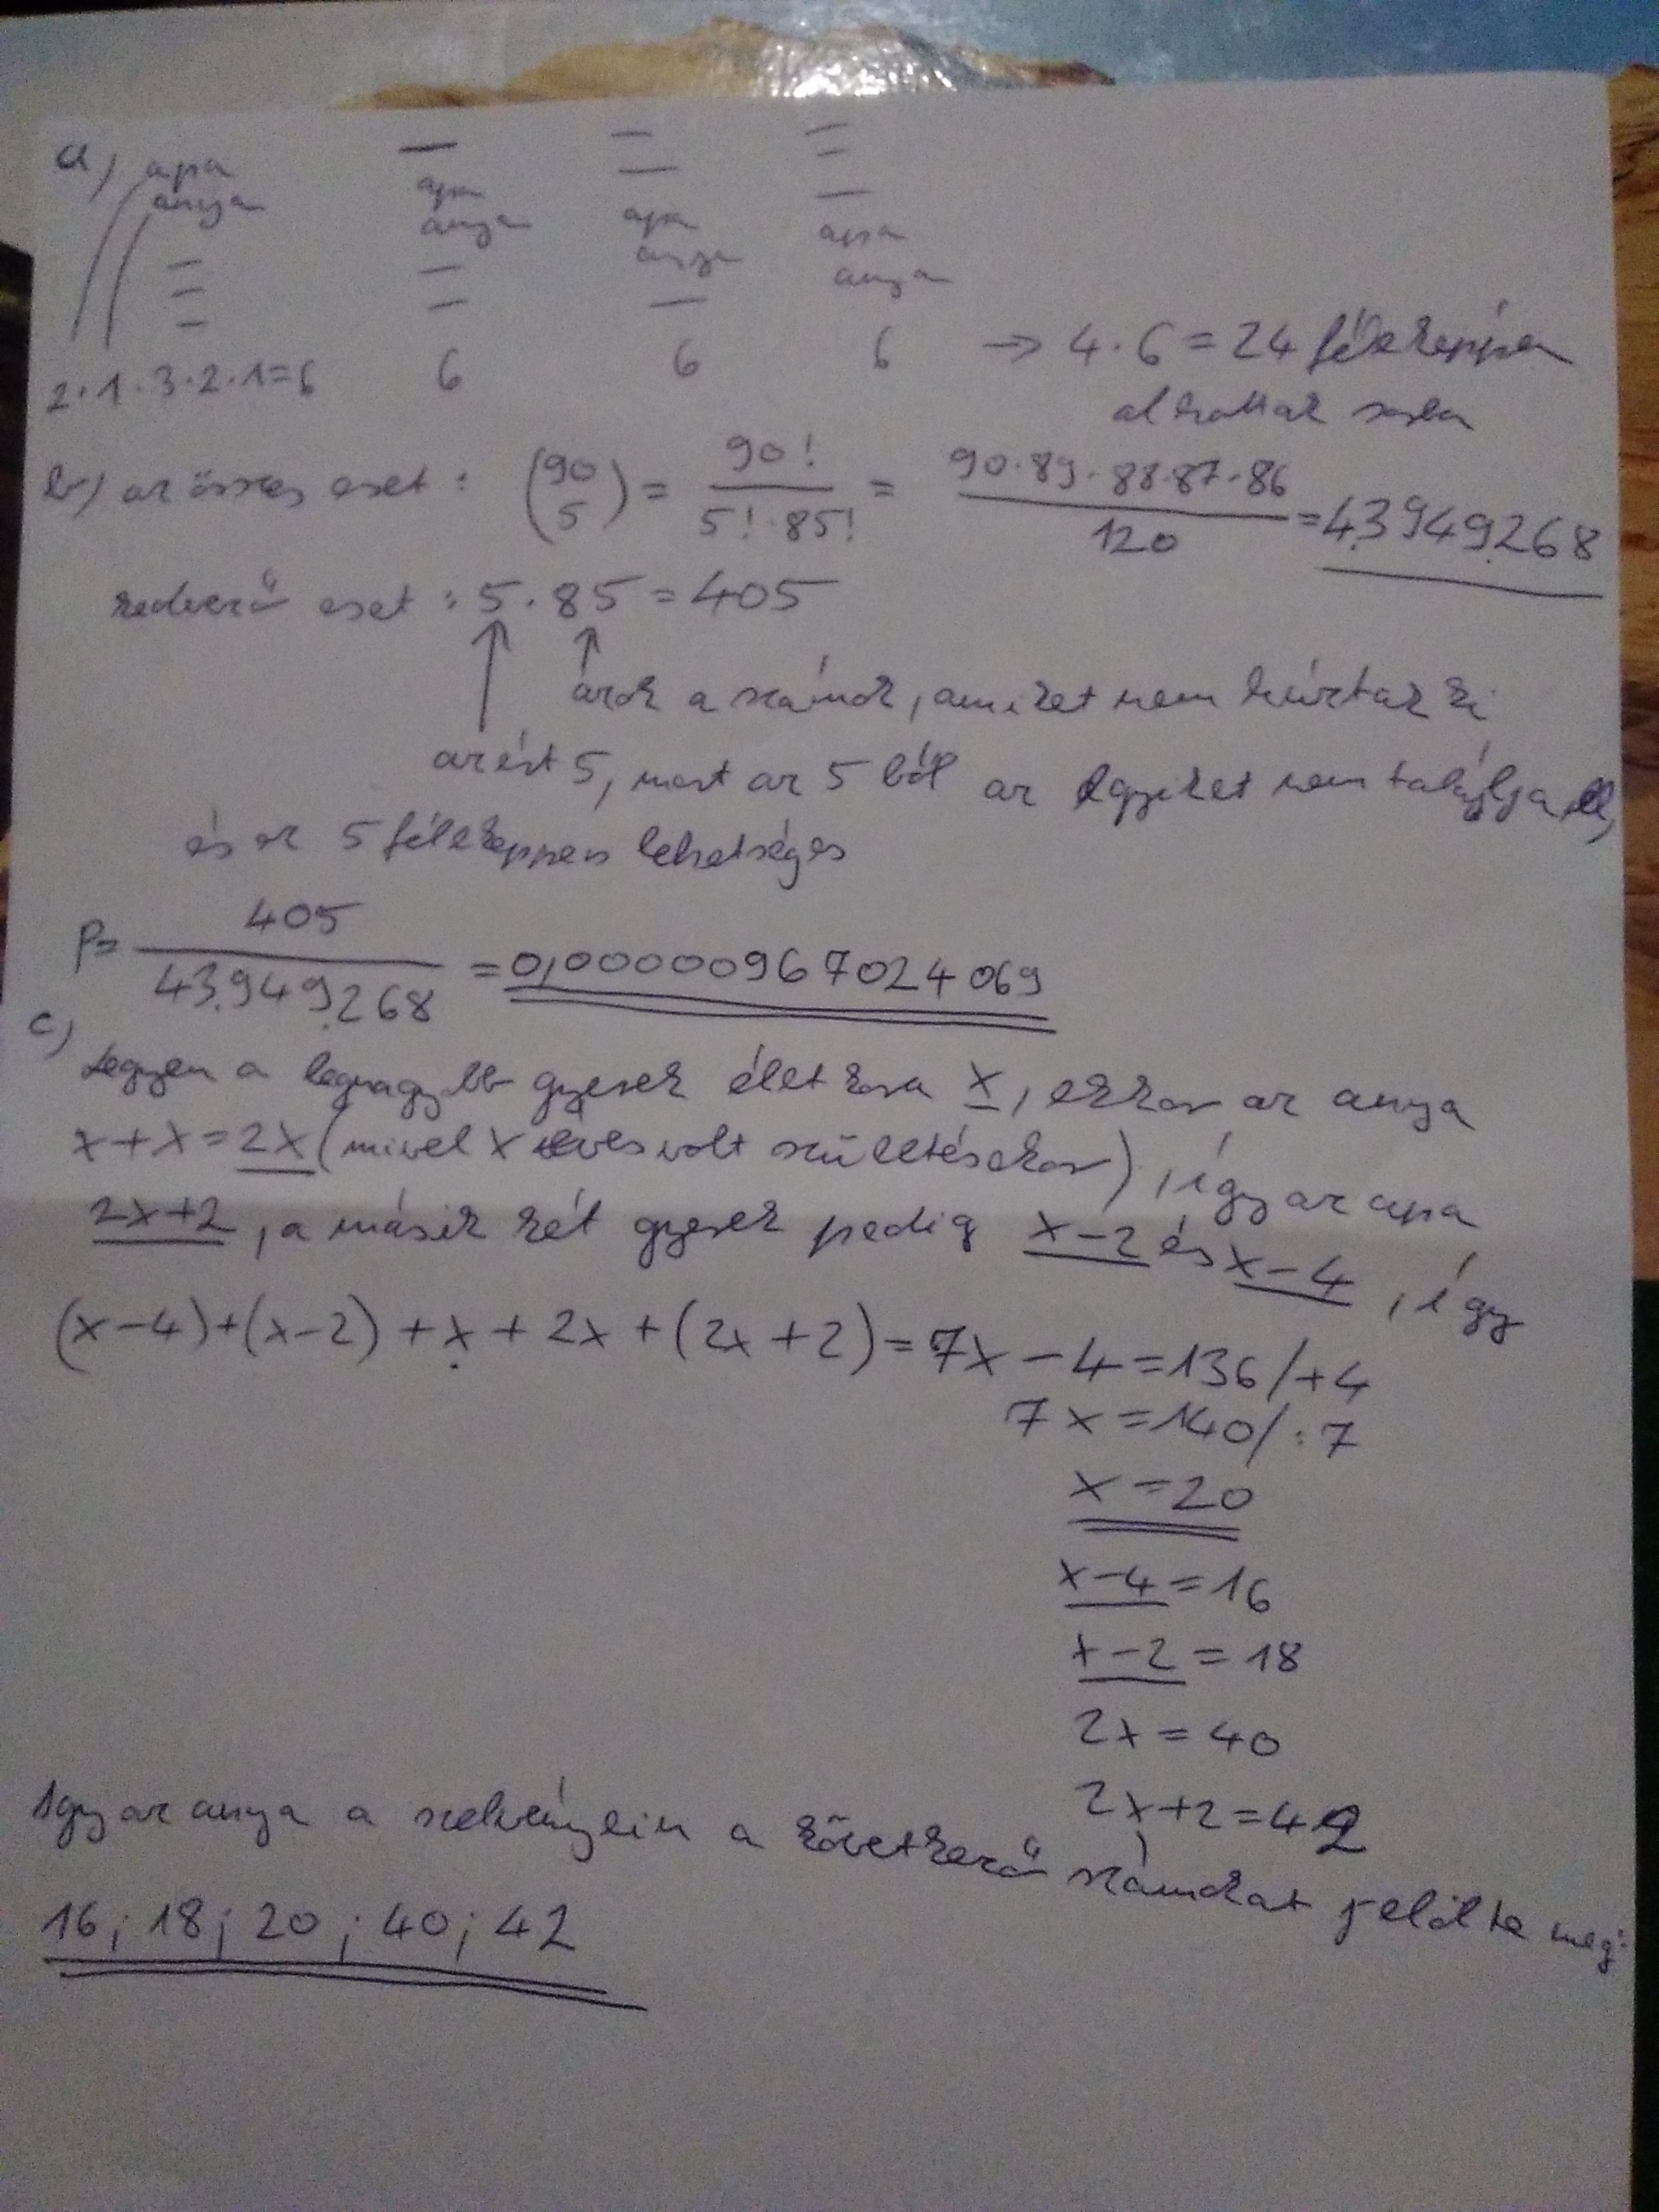 a) apa — — —
anya apa — —
— anya apa —
— — anya apa
— — — anya
2·1·3·2·1=6 6 6 6 → 4·6=24 féleképpen
állhattak sorba
b) az összes eset: (90 5) = 90!/(5!·85!) = 90·89·88·87·86/120 = 43.949.268
kedvező eset: 5·85=405
↑ ↑
azok a számok, amiket nem húztak ki
azért 5, mert az 5 ből az egyiket nem találja el,
és ez 5 féleképpen lehetséges
P= 405/43.949.268 = 0,00000967024069
c)
Legyen a legnagyobb gyerek életkora x, ekkor az anya
x+x=2x (mivel x éves volt születésekor), így az apa
2x+2, a másik két gyerek pedig x-2 és x-4, így
(x-4)+(x-2)+x+2x+(2x+2)=7x-4=136/+4
7x=140/:7
x=20
x-4=16
x-2=18
2x=40
2x+2=42
Így az anya a szelvényein a következő számokat jelölte meg:
16; 18; 20; 40; 42